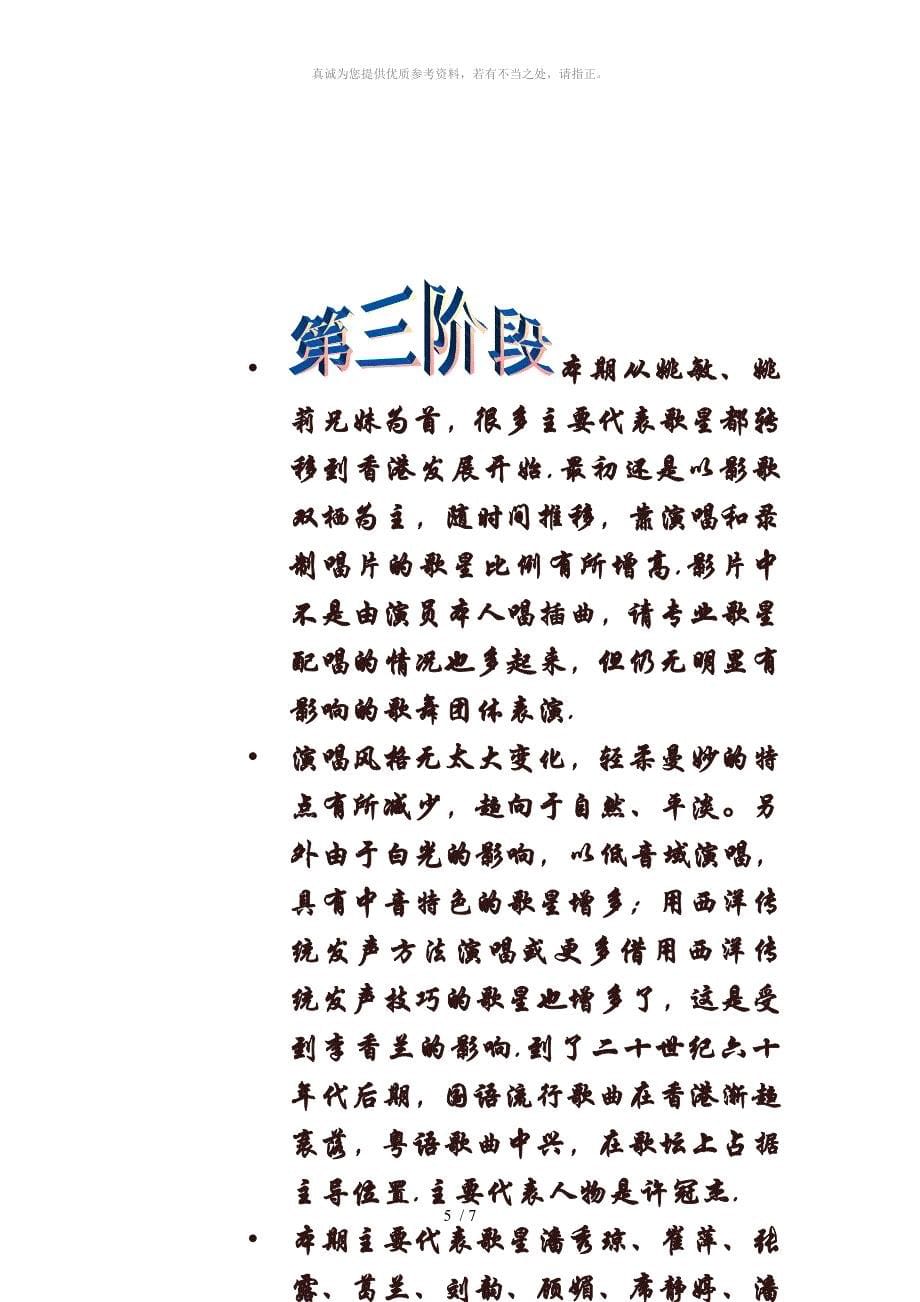 真诚为您提供优质参考资料，若有不当之处，请指正。
• 第三阶段本期从姚敏、姚
莉兄妹为首，很多主要代表歌星都转
移到香港发展开始.最初还是以影歌
双栖为主，随时间推移，靠演唱和录
制唱片的歌星比例有所增高.影片中
不是由演员本人唱插曲，请专业歌星
配唱的情况也多起来，但仍无明显有
影响的歌舞团体表演.
• 演唱风格无太大变化，轻柔曼妙的特
点有所减少，趋向于自然、平淡。另
外由于白光的影响，以低音域演唱，
具有中音特色的歌星增多；用西洋传
统发声方法演唱或更多借用西洋传
统发声技巧的歌星也增多了，这是受
到李香兰的影响.到了二十世纪六十
年代后期，国语流行歌曲在香港渐趋
衰落，粤语歌曲中兴，在歌坛上占据
主导位置.主要代表人物是许冠杰.
5 / 7
• 本期主要代表歌星潘秀琼、崔萍、张
露、葛兰、刘韵、顾媚、席静婷、潘